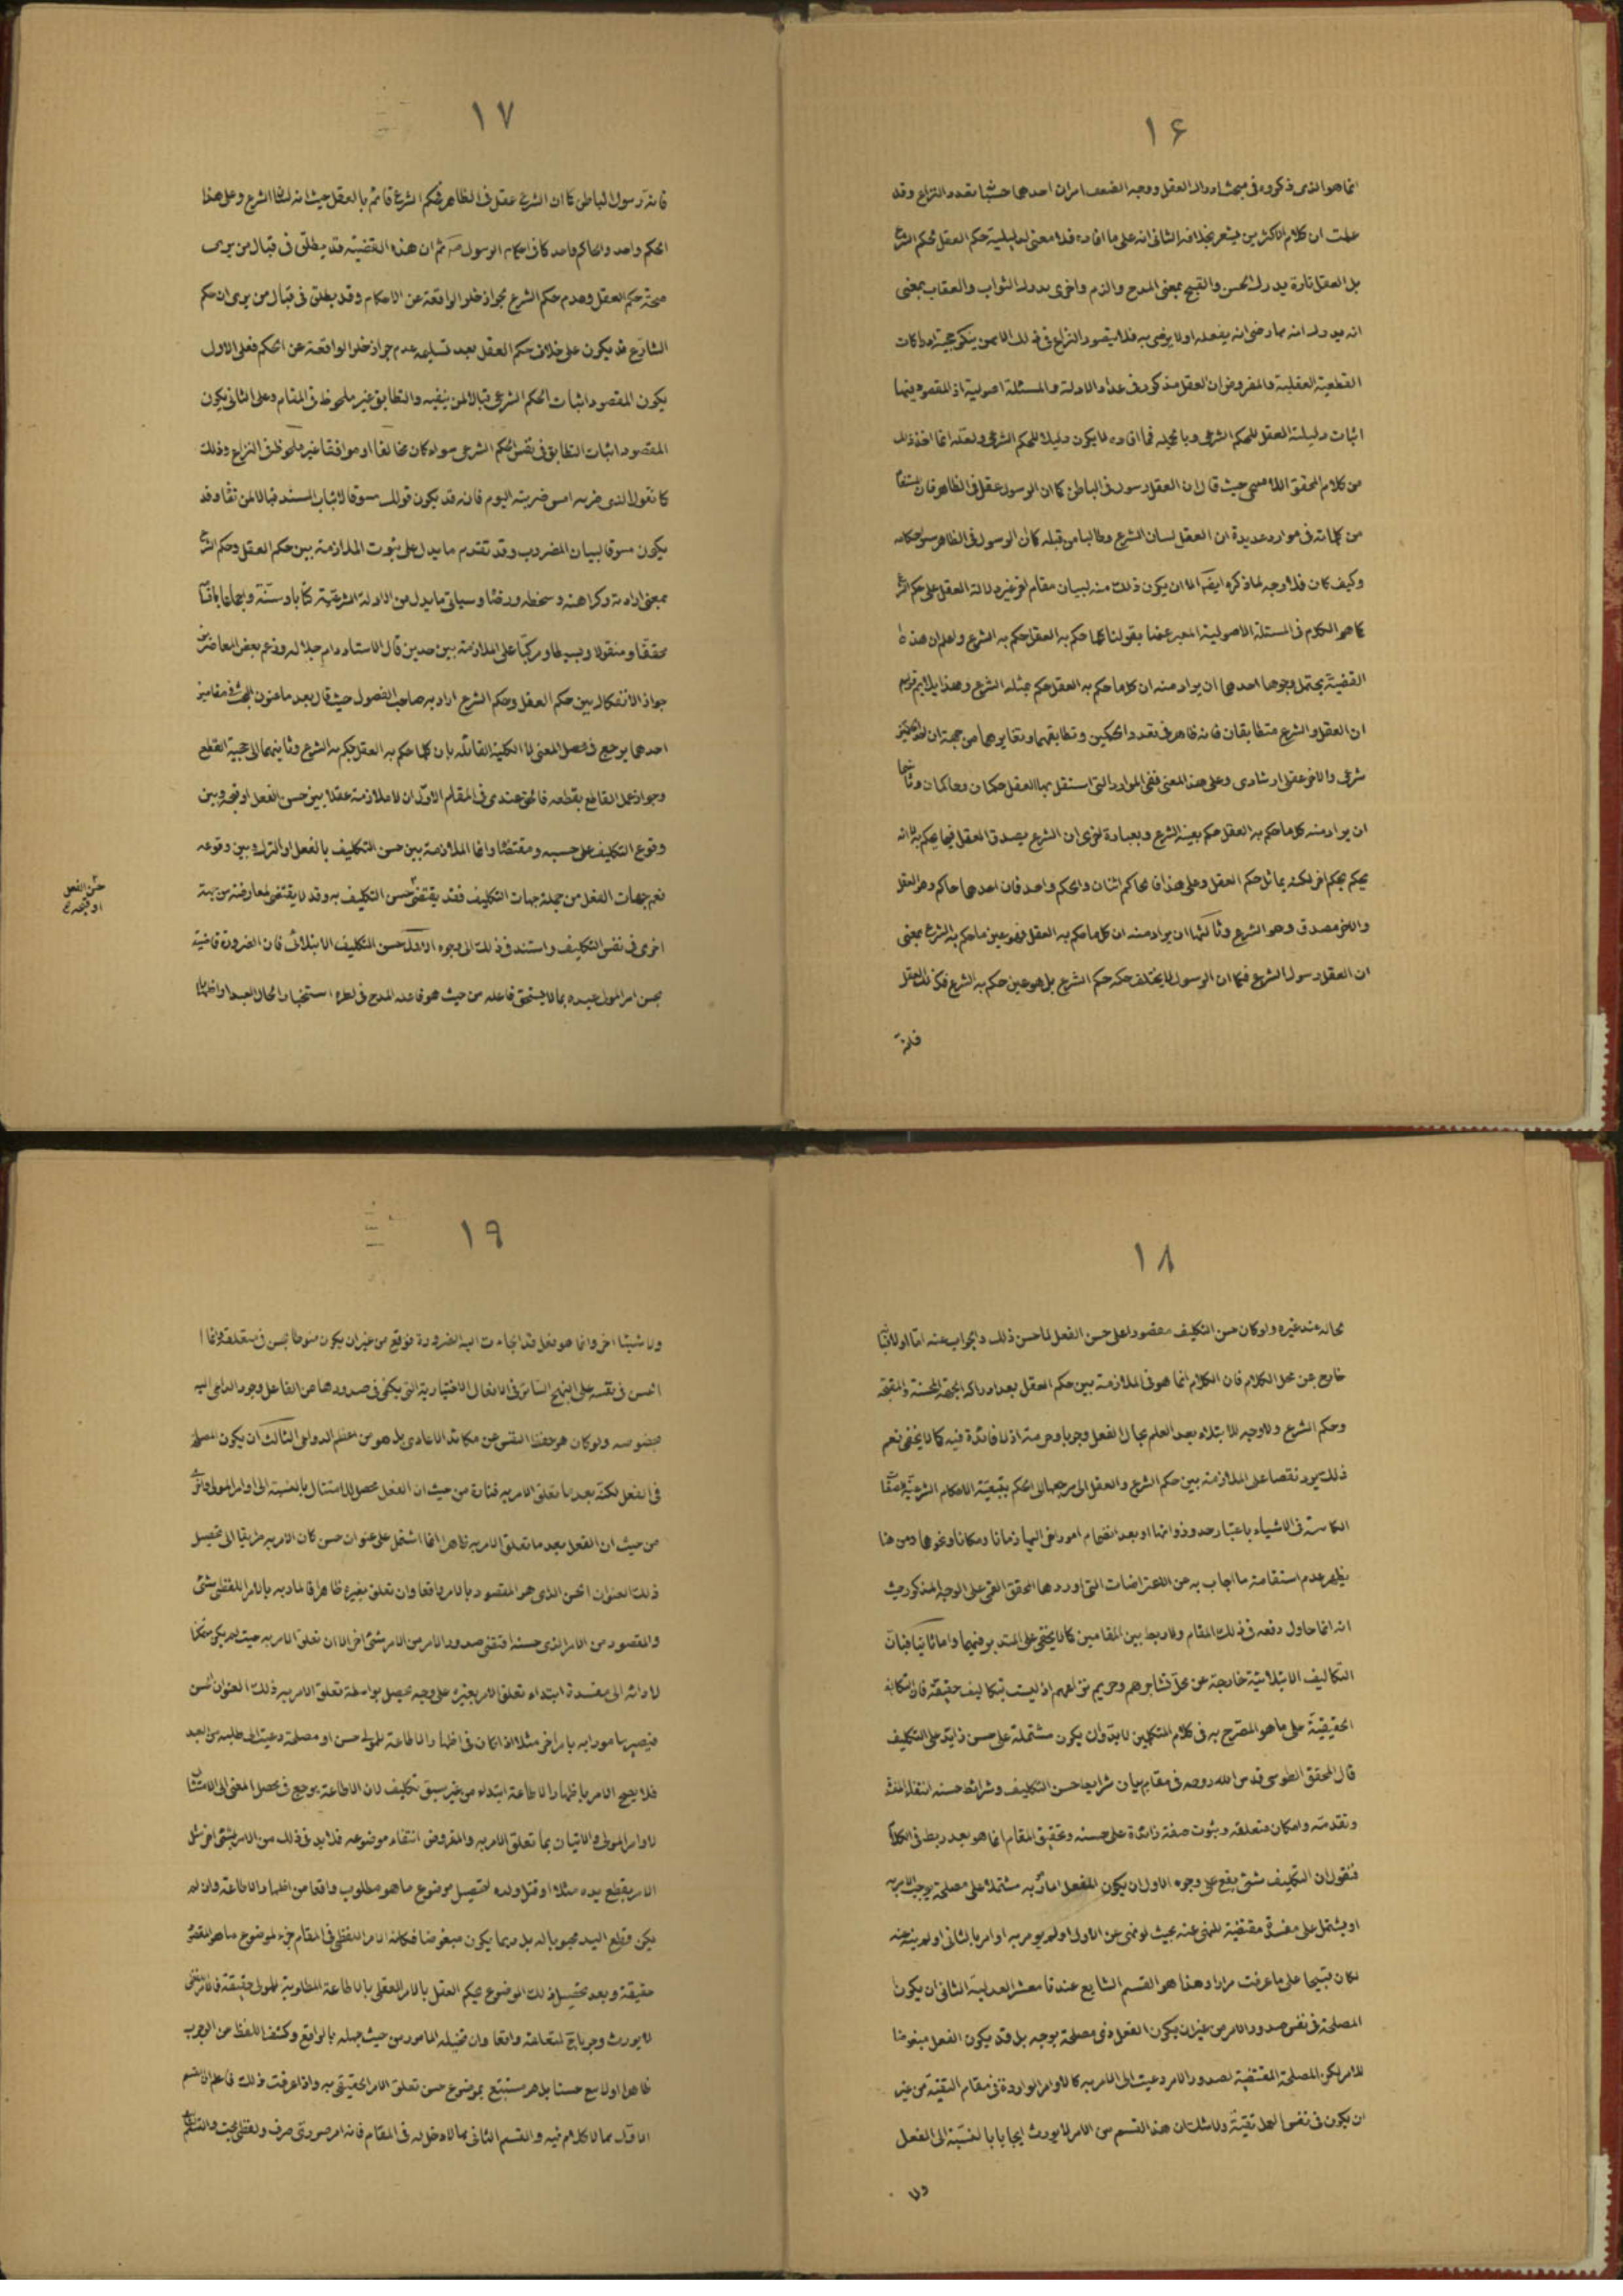 ١٦
انما هو الذى ذكروه فى مبحث ادراك العقل ووجه الضعف امران احدهما حسبما تقدم النزاع وقد
علمت ان كلام الاكثرين يشعر بخلافه الثانى انه على ما افاده فلا معنى لدليلية حكم العقل لحكم الشرع
بل العقل تارة يدرك الحسن والقبيح بمعنى المدح والذم واخرى يدرك الثواب والعقاب بمعنى
انه يدرك انه مما رضى انه يفعله اولا يرضى به فلا يتصور النزاع فى ذلك الا ممن ينكر حجية ادراكات
القطعية العقلية والمفروض ان العقل مذكور فى عداد الادلة والمسئلة اصولية اذ المقصود فيها
اثبات دليلية العقل للحكم الشرعى وبالجملة فما افاده لا يكون دليلا للحكم الشرعى ولعله انما اخذ ذلك
من كلام المحقق حيث قال ان العقل رسول فى الباطن كما ان الرسول عقل فى الظاهر فان
من كلماته فى موارد عديدة ان العقل لسان الشرع وطالبا من قبله كما ان الرسول فى الظاهر
وكيف كان فلا وجه لما ذكره ايضا الا ان يكون ذلك منه لبيان مقام اخر غير دلالة العقل على حكم
كما هو الكلام فى المسئلة الاصولية المعبر عنها بقولنا كلما حكم به العقل حكم به الشرع واعلم ان هذه
القضية يحتمل وجوها احدها ان يراد منه ان كلما حكم به العقل حكم بمثله الشرع وهذا
ان العقل والشرع متطابقان فانه ظاهر فى تعدد الحكمين وتطابقهما وتغايرهما من جهة ان
شرعى والاخر عقلى ارشادى وعلى هذا المعنى ففى الموارد التى استقل بها العقل حكمان وحاكمان وثانيها
ان يراد منه كلما حكم به العقل حكم بعينه الشرع وبعبارة اخرى ان الشرع يصدق العقل فيما يحكم به لا انه
يحكم بحكم اخر لكنه يماثل حكم العقل وعلى هذا فالحاكم اثنان والحكم واحد فان احدهما حاكم وهو العقل
والاخر مصدق وهو الشرع وثالثها ان يراد منه ان كلما حكم به العقل فهو عين ما حكم به الشرع بمعنى
ان العقل رسول الشرع فكما ان الرسول لا يختلف حكمه حكم الشرع بل هو عين حكم به الشرع فكذلك العقل
فانه
١٧
فانه رسول الباطن كما ان الشرع عقل فى الظاهر فحكم الشرع قائم بالعقل حيث انه لسان الشرع وعلى هذا
الحكم واحد والحاكم واحد كما فى احكام الرسول ص ثم ان هذه القضية قد يطلق فى قبال من يرى
صحة حكم العقل وعدم حكم الشرع بجواز خلو الواقعة عن الاحكام وقد يطلق فى قبال من يرى ان حكم
الشارع قد يكون على خلاف حكم العقل بعد تسليمه عدم جواز خلو الواقعة عن الحكم فعلى الاول
يكون المقصود اثبات الحكم الشرعى قبالا لمن ينفيه والتطابق غير ملحوظ فى المقام وعلى الثانى يكون
المقصود اثبات التطابق فى نفس الحكم الشرعى سواء كان مخالفا او موافقا غير ملحوظ فى النزاع وذلك
كما نقول الذى ضربه امس ضربته اليوم فانه قد يكون قولك مسوقا لاثبات المسند قبالا لمن نفاه وقد
يكون مسوقا لبيان المضروب وقد تقدم ما يدل على ثبوت الملازمة بين حكم العقل وحكم الشرع
بمعنى ارادته وكراهته وسخطه ورضاه وسياتى ما يدل من الادلة الشرعية كتابا وسنة واجماعا
محققا ومنقولا وبسيطا ومركبا على الملازمة بين حدين قال الاستاد دام جلاله وزعم بعض المعاصرين
جواز الانفكاك بين حكم العقل وحكم الشرع اراد به صاحب الفصول حيث قال بعد ما عنون البحث فى مقامين
احدهما يرجع فى محصل المعنى الى الكلية القائلة بان كلما حكم به العقل حكم به الشرع وثانيهما الى حجية القطع
وجواز عمل القاطع بقطعه فالحق عندى فى المقام الاول ان لا ملازمة عقلا بين حسن الفعل او قبحه وبين
وقوع التكليف على حسبه ومقتضاه وانما الملازمة بين حسن التكليف بالفعل او الترك وبين وقوعه
نعم جهات الفعل من جملة جهات التكليف فقد يقتضى حسن التكليف به وقد لا يقتضى لمعارضة من جهة
حسن الفعل
او قبحه صح
اخرى فى نفس التكليف واستند فى ذلك الى وجوه الاول حسن التكليف الابتلائى فان الضرورة قاضية
بحسن امر المولى عبده بما لا يستحق فاعله من حيث هو فاعله المدح فى نظره استخبارا لحال العبد او اظهارا
١٨
لحاله عند غيره ولو كان حسن التكليف مقصورا على حسن الفعل لما حسن ذلك والجواب عنه اما اولا فبانه
خارج عن محل الكلام فان الكلام انما هو فى الملازمة بين حكم العقل بعد ادراكه الجهة المحسنة والمقبحة
وحكم الشرع ولا وجه للابتلاء بعد العلم بحال الفعل وجوبا وحرمة اذ لا فائدة فيه كما لا يخفى نعم
ذلك يورد نقضا على الملازمة بين حكم الشرع والعقل الى مرجعها الى الحكم بتبعية الاحكام الشرعية
الكامنة فى الاشياء باعتبار حدود ذواتها او بعد انضمام امور اخر اليها زمانا ومكانا ونحوها ومن هنا
يظهر عدم استقامة ما اجاب به عن الاعتراضات التى اوردها المحقق القمى على الوجه المذكور حيث
انه انما حاول دفعه فى ذلك المقام ولا ربط بين المقامين كما لا يخفى على المتدبر فيهما واما ثانيا فبان
التكاليف الابتلائية خارجة عن محل تشاجرهم وحريم نزاعهم اذ ليست بتكاليف حقيقة فان التكاليف
الحقيقية على ما هو المصرح به فى كلام المتكلمين لا بد وان يكون مشتملة على حسن زايد على التكليف
قال المحقق الطوسى قدس الله روحه فى مقام بيان شرايط حسن التكليف وشرائط حسنه انتفاء المفسدة
وتقدمه وامكان متعلقه وثبوت صفة زائدة على حسنه وتحقيق المقام انما هو بعد ربط فى الكلام
فنقول ان التكليف بشئ يقع على وجوه الاول ان يكون الفعل المأمور به مشتملا على مصلحة يوجب الامر به
او يشتمل على مفسدة مقتضية للنهى عنه بحيث لو نهى عن الاول او لم يومر به او امر بالثانى او لم ينه عنه
لكان قبيحا على ما عرفت مرارا وهذا هو القسم الشايع عندنا معشر العدلية الثانى ان يكون
المصلحة فى نفس صدور الامر من غير ان يكون الفعل ذى مصلحة بوجه بل قد يكون الفعل مبغوضا
للامر لكن المصلحة المقتضية لصدور الامر دعيت الى الامر به كالاوامر الواردة فى مقام التقية من غير
ان يكون فى نفس العمل تقية ولا شك ان هذا القسم من الامر لا يورث ايجابا بالنسبة الى الفعل
ولا
١٩
ولا شيئا اخر وانما هو فعل قد الجاءت اليه الضرورة فوقع من غير ان يكون منوطا بحسن فى متعلقه وانما
الحسن فى نفسه على النهج السائر فى الافعال الاختيارية التى يكفى فى صدورها عن الفاعل وجود الداعى اليه
بخصوصه ولو كان هو حفظ النفس عن مكائد الاعادى بل هو من اعظم الدواعى الثالث ان يكون المصلحة
فى الفعل لكنه بعد ما تعلق الامر به فتارة من حيث ان الفعل محصل للامتثال بالنسبة الى اوامر المولى واخرى
من حيث ان الفعل بعد ما تعلق الامر به ظاهرا انما اشتمل على عنوان حسن كان الامر به طريقا الى تحصيل
ذلك العنوان الحسن الذى هو المقصود بالامر واقعا وان تعلق بغيره ظاهرا فالمأمور به بالامر اللفظى شئ
والمقصود من الامر الذى حسنه اقتضى صدور الامر من الامر شئ اخر الا ان تعلق الامر به حيث لم يكن ممكنا
لادائه الى مفسدة ابتداء تعلق الامر بغيره على وجه يحصل بواسطة تعلق الامر به ذلك العنوان الحسن
فيصير مامورا به بامر اخر مثلا اذا كان فى اظهار الاطاعة للمولى حسن او مصلحة دعيت الى طلبه من العبد
فلا يصح الامر باظهار الاطاعة ابتداء من غير سبق تكليف لان الاطاعة يرجع فى محصل المعنى الى الامتثال
لاوامر المولى والاتيان بما تعلق الامر به والمفروض انتفاء موضوعه فلا بد فى ذلك من الامر بشئ اخر مثل
الامر بقطع يده مثلا او قتل ولده لتحصيل موضوع ما هو مطلوب واقعا من اظهار الاطاعة وان لم
يكن قطع اليد محبوبا له بل ربما يكون مبغوضا فكان الامر اللفظى فى المقام جزء لموضوع ما هو المقصود
حقيقة وبعد تحصيل ذلك الموضوع يحكم العقل بالامر العقلى بالاطاعة المطلوبة للمولى حقيقة فالامر اللفظى
لا يورث وجوبا لمتعلقه واقعا وان تخيله المامور من حيث جهله بالواقع وكشف اللفظ عن الوجوب
ظاهرا اولا مع حسنا بل هو مستتبع بموضوع حسن تعلق الامر الحقيقى به واذا عرفت ذلك فاعلم ان القسم
الاول مما لا كلام فيه والقسم الثانى مما لا دخل له فى المقام فانه امر صورى صرف ولفظى بحت